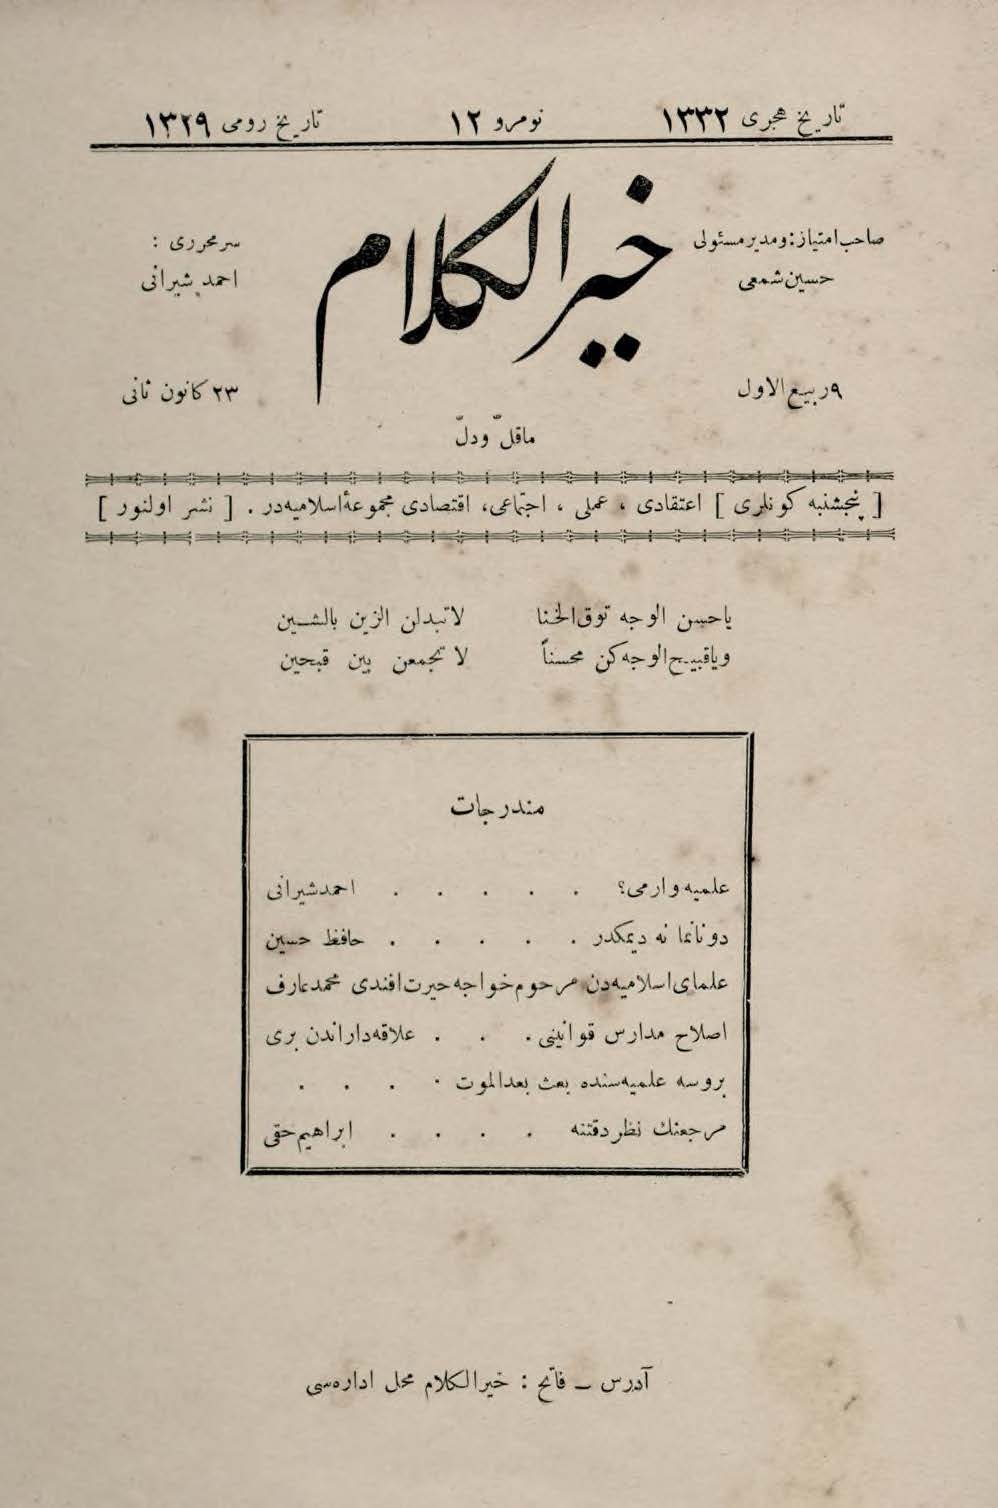 تاریخ هجری ١٣٣٢ نومرو ١٢ تاریخ رومی ١٣٢٩
خیر الکلام
صاحب امتیاز : ومدیر مسئولی
حسین شمعی
سر محرری :
احمد شیرانی
٩ ربیع الاول
٢٣ کانون ثانی
ماقلّ ودلّ
[ پنجشنبه کونلری ] اعتقادی ، عملی ، اجتماعی ، اقتصادی مجموعۀ اسلامیه در . [ نشر اولنور ]
یاحسن الوجه توق الخنا لا تبدلن الزین بالشین
ویاقبیح الوجه کن محسناً لا تجمعن بین قبحین
مندرجات
علمیه وارمی؟ . . . . . احمد شیرانی
دونانما نه دیمکدر . . . . . حافظ حسین
علمای اسلامیه دن مرحوم خواجه حیرت افندی محمد عارف
اصلاح مدارس قوانینی . . . علاقه داراندن بری
بروسه علمیه سنده بعث بعد الموت . . . .
مرجعنك نظر دقتنه . . . . ابراهیم حقی
آدرس ــ فاتح : خیر الکلام محل اداره سی